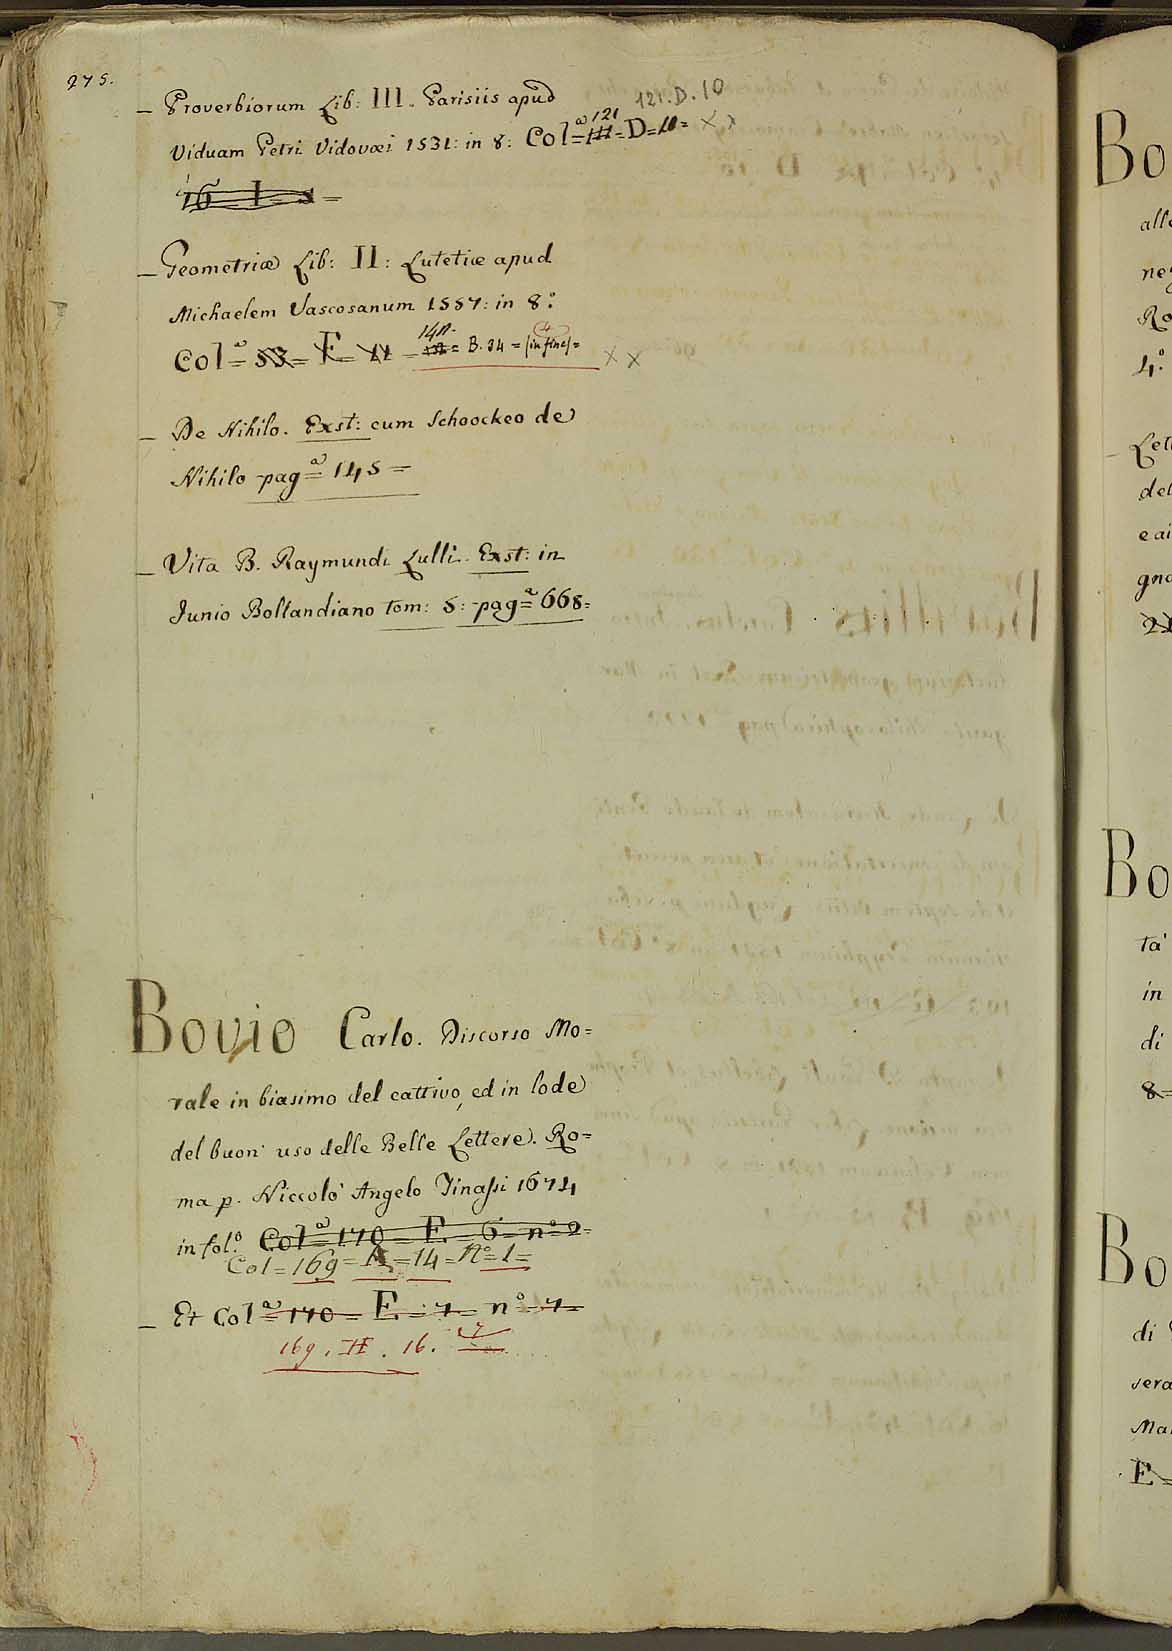 275.
121.D.10
— Proverbiorum Lib: III. Parisiis apud
Viduam Petri Vidovæi 1531: in 8: Col=ª 121 = D=10= x x
16 I
— Geometriæ Lib: II: Lutetiæ apud
Michaelem Vascosanum 1557: in 8º:
Col=ª 53= F= 11 = 148. = B. 34 = (in fine)= x x
— De Nihilo. Exst: cum Schoockeo de
Nihilo pag=ª 145 =
— Vita B. Raymundi Lulli. Exst: in
Junio Bollandiano tom: 5: pag=ª 668=
Bovio Carlo. Discorso Mo=
rale in biasimo del cattivo, ed in lode
del buon uso delle Belle Lettere. Ro=
ma p. Niccolò Angelo Tinassi 1674
in fol.º Col=ª 170 = E = 6 = nº 2=
Col=169= =14=Nº=1=
— Et Col=ª 170 = E = 7 = nº 7=
169. H. 16. 7
Bo
alle
neg
Ro
4.º
Lett
del
e ai
gno
Bo
ta'
in
di
8=
Bo
di
sera
Ma
E